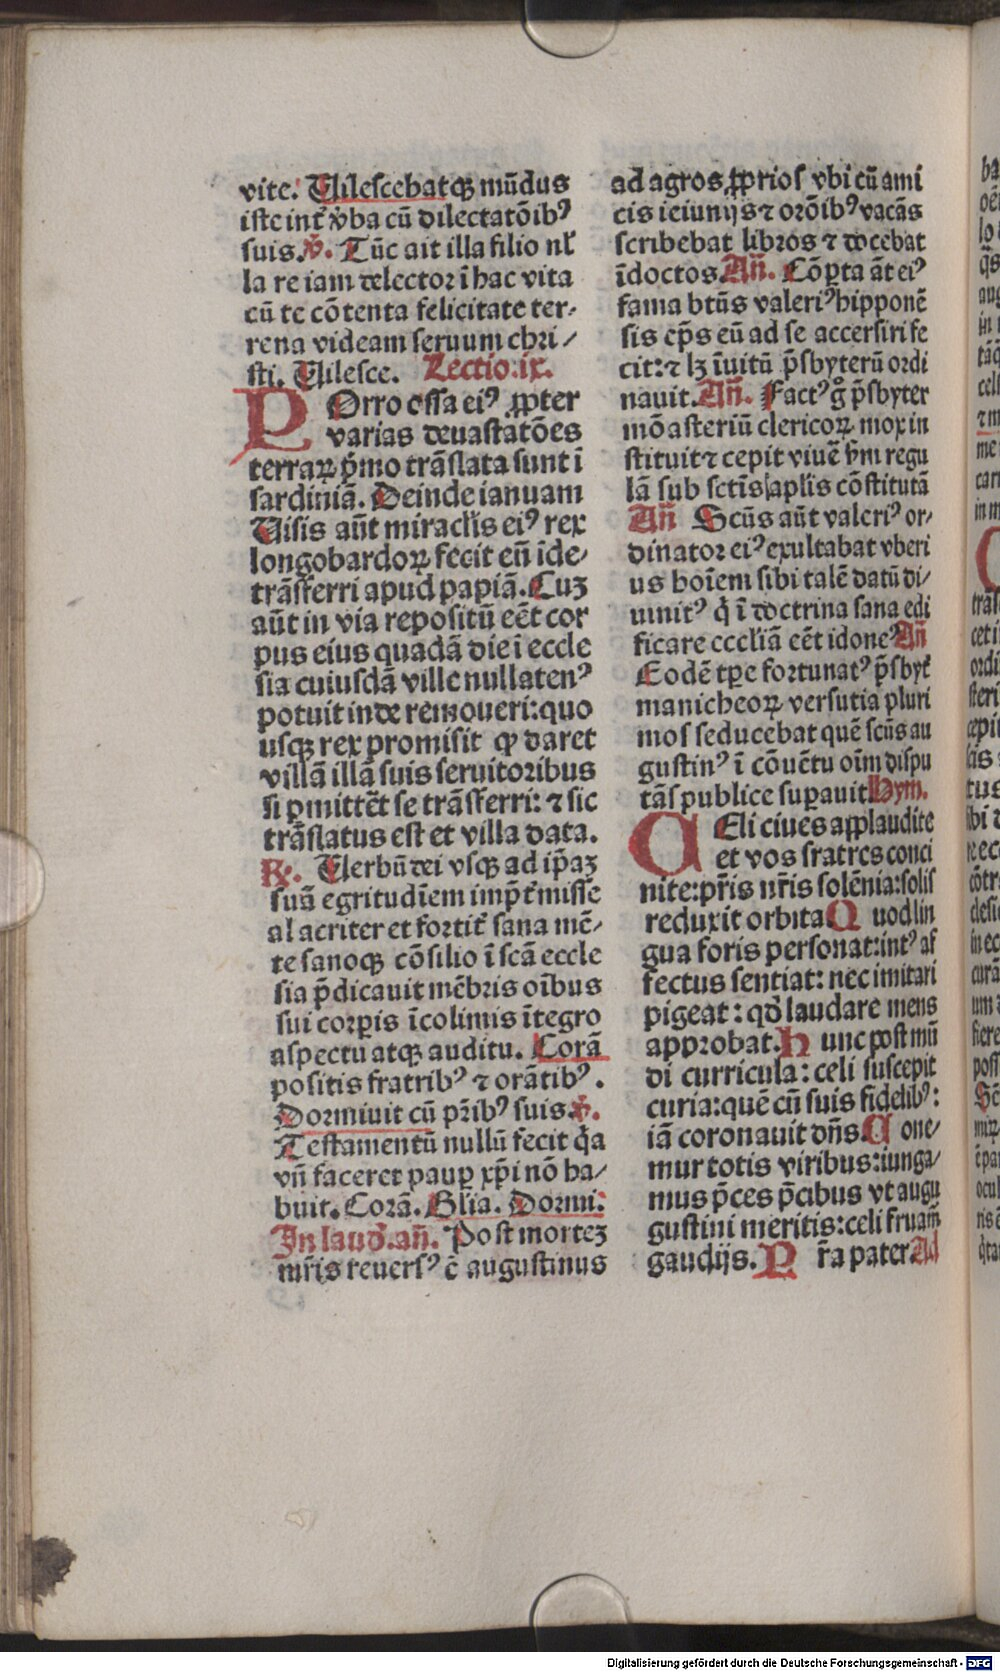 vite. Vilescebatqꝫ mūdus
iste int̄ v̓ba cū dilectatōib⁹
suis. ℣. Tūc ait illa filio nl̄
la re iam delector ī hac vita
cū te cōtenta felicitate ter⸗
rena videam seruum chri⸗
sti. Vilesce. Lectio.ix.
POrro ossa ei⁹ ꝓpter
varias deuastatōes
terraꝝ p̓mo trāslata sunt ī
sardiniā. Deinde ianuam
Visis aūt miracl̓is ei⁹ rex
longobardoꝝ fecit eū īde⸗
trāsferri apud papiā. Cuꝫ
aūt in via repositū eēt cor
pus eius quadā die ī eccle
sia cuiusdā ville nullaten⁹
potuit inde remoueri: quo
usqꝫ rex promisit ꝙ daret
villā illā suis seruitoribus
si ꝑmittēt se trāsferri: ⁊ sic
trāslatus est et villa data.
℟. Verbū dei vsqꝫ ad ip̄aꝫ
suā egritudīem imp̄t̓misse
alacriter et fortit̓ sana mē⸗
te sanoqꝫ cōsilio ī scā eccle
sia p̄dicauit mēbris oībus
sui corpis īcolimis ītegro
aspectu atqꝫ auditu. Corā
positis fratrib⁹ ⁊ orātib⁹.
Dormiuit cū pr̄ib⁹ suis. ℣.
Testamentū nullū fecit q̓a
vn̄ faceret pauꝑ xp̄i nō ha⸗
buit. Corā. Glia. Dormi:
In laud̓. an̄. Post morteꝫ
mr̄is reuers⁹ ē augustinus
ad agros ꝓprios vbi cū ami
cis ieiunijs ⁊ orōib⁹ vacās
scribebat libros ⁊ docebat
īdoctos. An̄. Cōꝑta āt ei⁹
fama btūs valeri⁹ hipponē
sis ep̄s eū ad se accersiri fe
cit: ⁊ lꝫ īuitū p̄sbyterū ordi
nauit. An̄. Fact⁹ g̊ p̄sbyter
mōasteriū clericoꝝ mox in
stituit ⁊ cepit viuē ẜm regu
lā sub sctīs aplis cōstitutā
An̄ Scūs aūt valeri⁹ or⸗
dinator ei⁹ exultabat vberi
us boīem sibi talē datū di⸗
uinit⁹ q̓ ī doctrina sana edi
ficare eccl̓iā eēt idone⁹ An̄
Eodē tꝑe fortunat⁹ p̄sbyt̓
manicheoꝝ versutia pluri
mos seducebat quē scūs au
gustin⁹ ī cōuētu oīm dispu
tās publice suꝑauit Hym.
CEli ciues applaudite
et vos fratres conci
nite: pr̄is nr̄is solēnia: solis
reduxit orbita Q uod lin
gua foris personat: int⁹ af
fectus sentiat: nec imitari
pigeat: qd̓ laudare mens
approbat. H unc post mū
di curricula: celi suscepit
curia: quē cū suis fidelib⁹:
iā coronauit dn̄s C one⸗
mur totis viribus: iunga⸗
mus p̄ces p̄cibus vt augu
gustini meritis: celi fruam̄
gaudijs. P r̄a pater. Ad
Digitalisierung gefördert durch die Deutsche Forschungsgemeinschaft - DFG